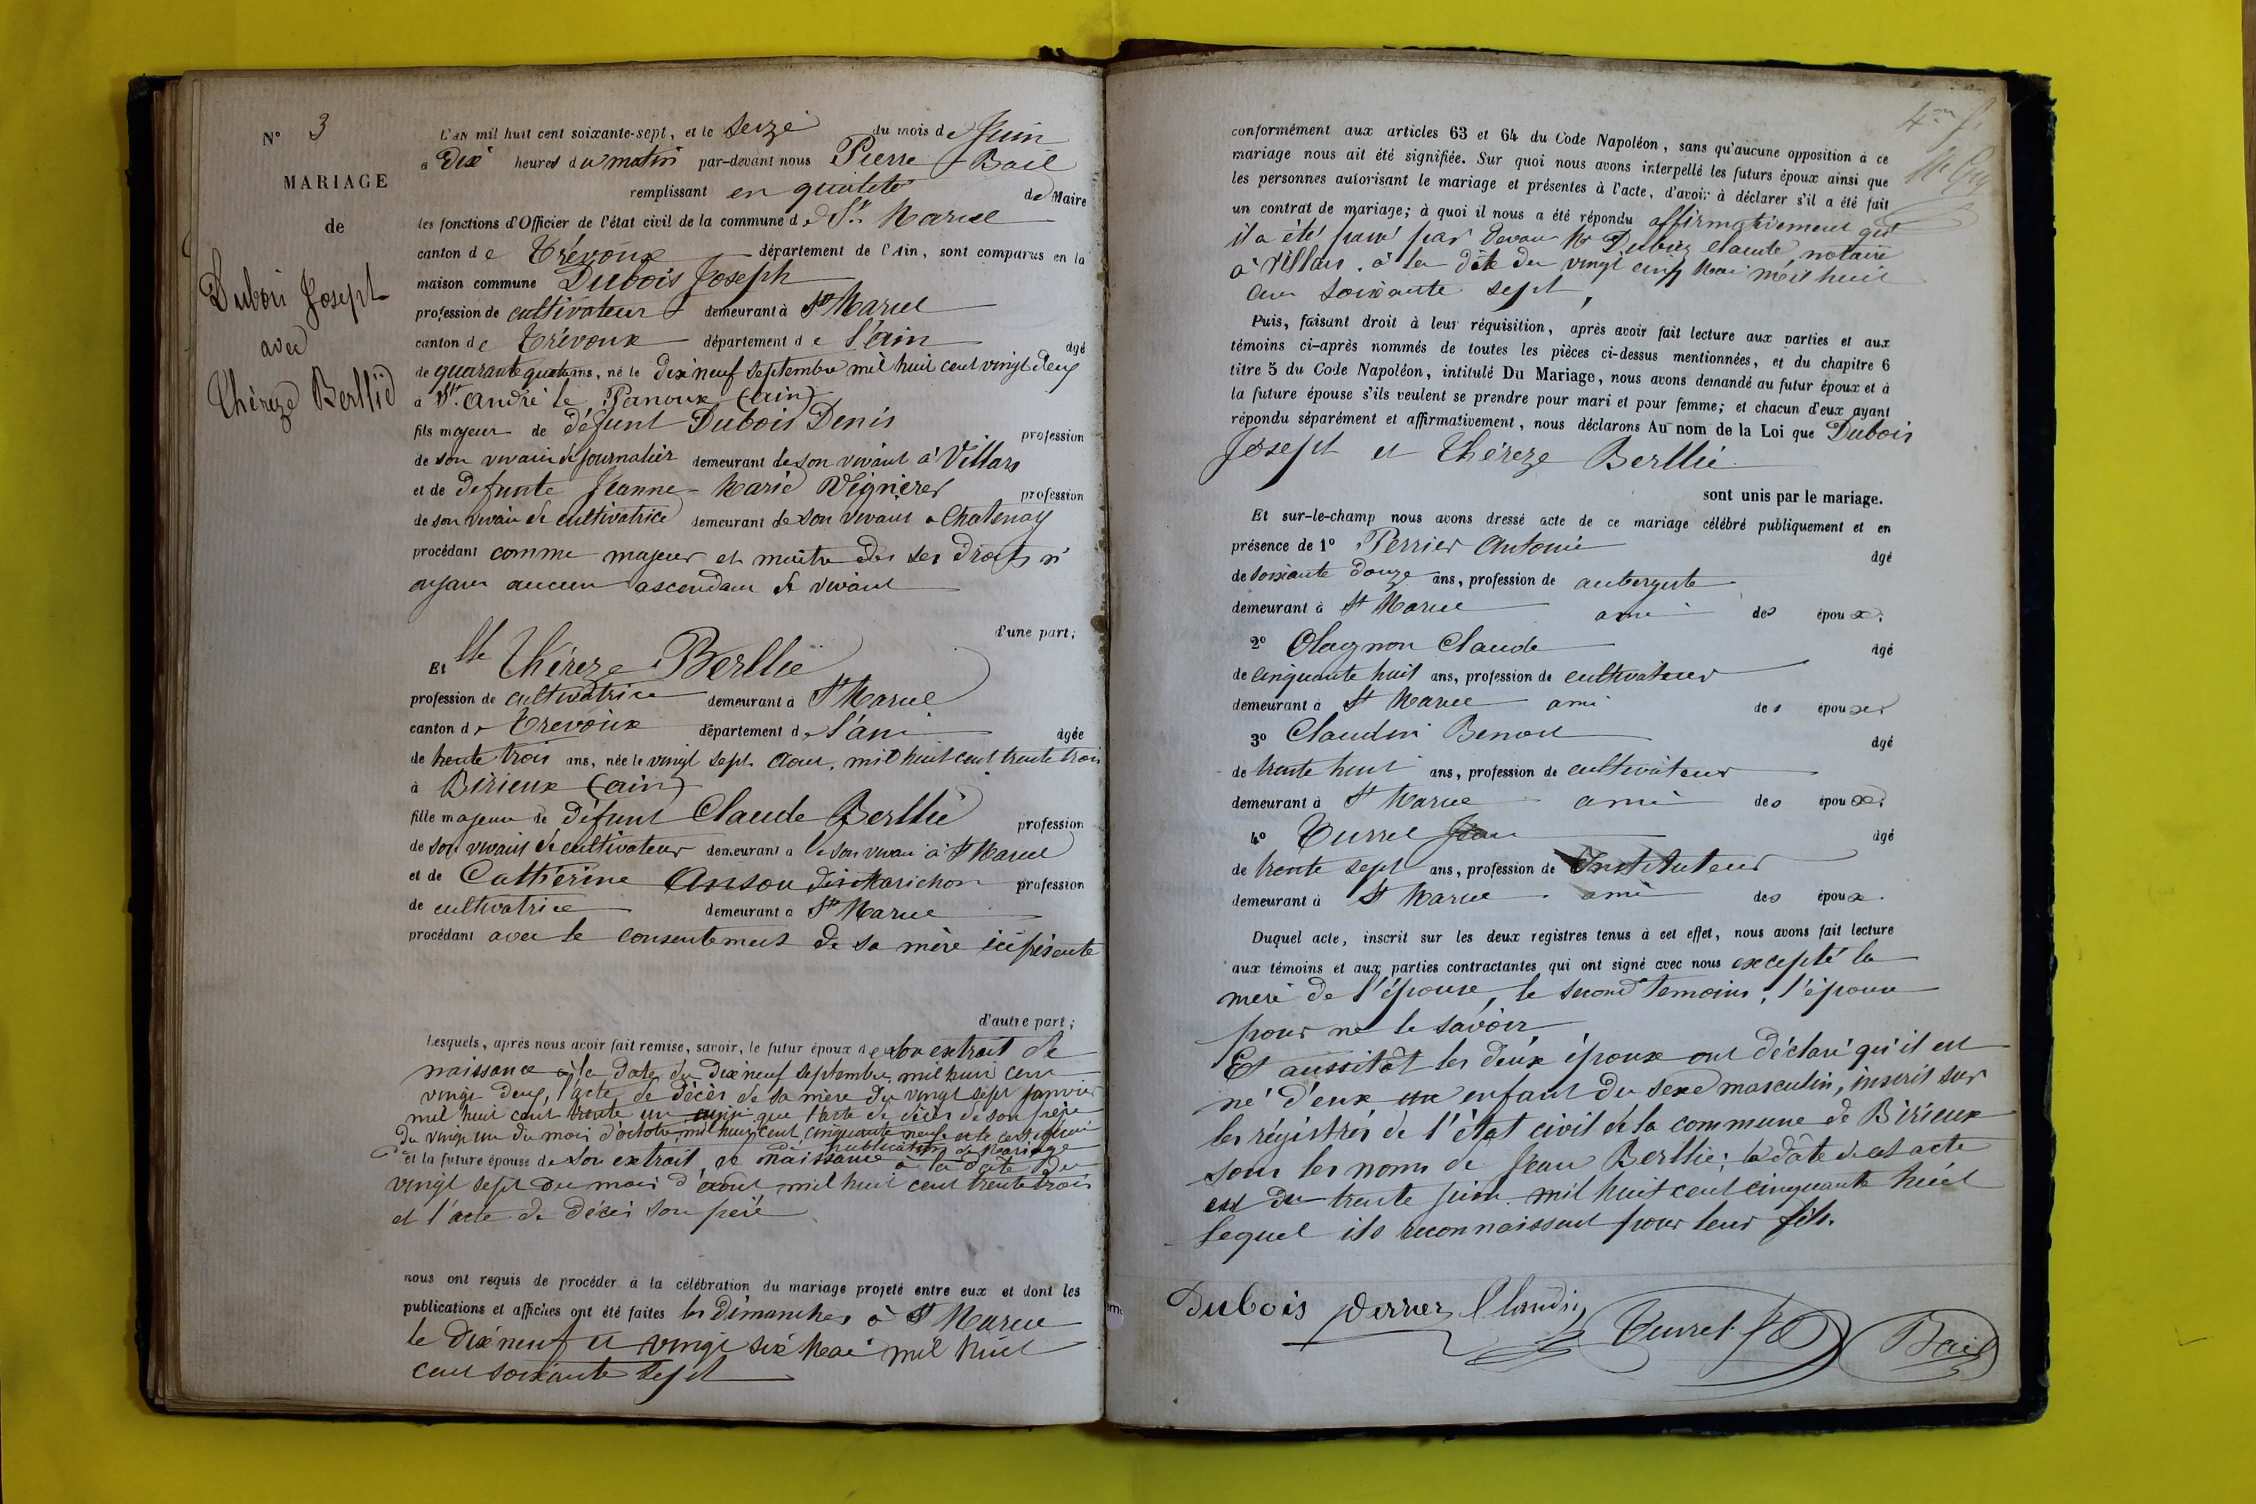 N° 3
MARIAGE
de
Dubois Joseph
avec
Théreze Berllié
L'AN mil huit cent soixante-sept, et le seize du mois de Juin
à Dix heures du matin par-devant nous Pierre Bail
remplissant en qualité de Maire
les fonctions d'Officier de l'état civil de la commune de St Marcel
canton de Trévoux département de l'Ain, sont comparus en la
maison commune Dubois Joseph
profession de cultivateur demeurant à St Marcel
canton de Trévoux département de l'ain âgé
de quarante quatre ans, né le dix neuf septembre mil huit cent vingt deux
à St. André le Panoux (ain)
fils majeur de défunt Dubois Denis profession
de son vivant de journalier demeurant de son vivant à Villars
et de défunte Jeanne-Marie profession
de son vivant de cultivatrice demeurant de son vivant à Chatenay
procédant comme majeur et maître de ses droits n'
ayant aucun ascendant de vivant
d'une part;
Et Mlle Théreze Berllié
profession de cultivatrice demeurant à St Marcel
canton de Trevoux département de l'ain âgée
de trente trois ans, née le vingt sept aout mil huit cent trente trois
à Birieux (ain)
fille majeure de défunt Claude Berllié profession
de son vivant de cultivateur demeurant de son vivant à St Marcel
et de Cathérine profession
de cultivatrice demeurant à St Marcel
procédant avec le consentement de sa mère ici présente
d'autre part;
Lesquels, après nous avoir fait remise, savoir, le futur époux de son extrait de
naissance à la date du dix neuf septembre mil huit cent
vingt deux, l'acte de décès de sa mère du vingt sept janvier
mil huit cent trente un ainsi que l'acte de décès de son père
du vingt un du mois d'octobre mil huit cent cinquante neuf et le certificat
de publication de Mariage
et la future épouse de son extrait de naissance à la date du
vingt sept du mois d'aout mil huit cent trente trois
et l'acte de décès son père
nous ont requis de procéder à la célébration du mariage projeté entre eux et dont les
publications et affiches ont été faites les dimanches à St Marcel
le dix neuf et vingt six Mai mil huit
cent soixante sept
conformément aux articles 63 et 64 du Code Napoléon, sans qu'aucune opposition à ce
mariage nous ait été signifiée. Sur quoi nous avons interpellé les futurs époux ainsi que
les personnes autorisant le mariage et présentes à l'acte, d'avoir à déclarer s'il a été fait
un contrat de mariage; à quoi il nous a été répondu affirmativement qu'
il a été passé par devant Me Claude, notaire
à Villars. à la date du vingt cinq Mai mil huit
cent soixante sept,
Puis, faisant droit à leur réquisition, après avoir fait lecture aux parties et aux
témoins ci-après nommés de toutes les pièces ci-dessus mentionnées, et du chapitre 6
titre 5 du Code Napoléon, intitulé Du Mariage, nous avons demandé au futur époux et à
la future épouse s'ils veulent se prendre pour mari et pour femme; et chacun d'eux ayant
répondu séparément et affirmativement, nous déclarons Au nom de la Loi que Dubois
Joseph et Théreze Berllié
sont unis par le mariage.
Et sur-le-champ nous avons dressé acte de ce mariage célébré publiquement et en
présence de 1° Perrier Antonie âgé
de soixante douze ans, profession de aubergiste
demeurant à St Marcel ami des époux.
2° Olagnon Claude âgé
de cinquante huit ans, profession de cultivateur
demeurant à St Marcel ami des époux
3° Claudin Benoit âgé
de trente huit ans, profession de cultivateur
demeurant à St Marcel ami des époux
4° Turrel Jean âgé
de trente sept ans, profession de Instituteur
demeurant à St Marcel ami des époux.
Duquel acte, inscrit sur les deux registres tenus à cet effet, nous avons fait lecture
aux témoins et aux parties contractantes qui ont signé avec nous excepté la
mère de l'épouse, le second témoins, l'épouse
pour ne le savoir
Et aussitôt les deux époux ont déclaré qu'il est
né d'eux un enfant du sexe masculin, inscrit sur
les régistres de l'état civil de la commune de Birieux
sous les noms de Jean Berllié; la date de cet acte
est du trente juin mil huit cent cinquante huit
lequel ils reconnaissent pour leur fils.
Dubois Perrier Claudin Turrel Bail